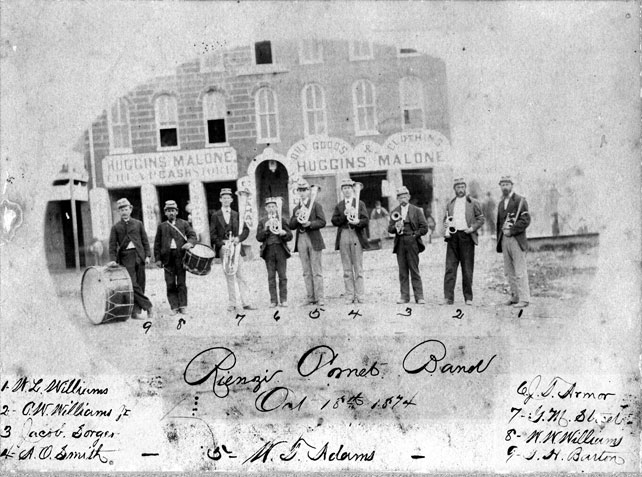 HUGGINS MALONE.
CHEAP CASH STORE
DRY GOODS & CLOTHING
HUGGINS MALONE
9 8 7 6 5 4 3 2 1
Rienzi Cornet Band
Oct 18th 1874
1. W L Williams
2- O.W. Williams Jr
3 Jacob Dorges
4- A.O. Smith.
5- W. T. Adams
6 J. T. Armor
7- G. M.
8- W. W Williams
9- J. H. Barton